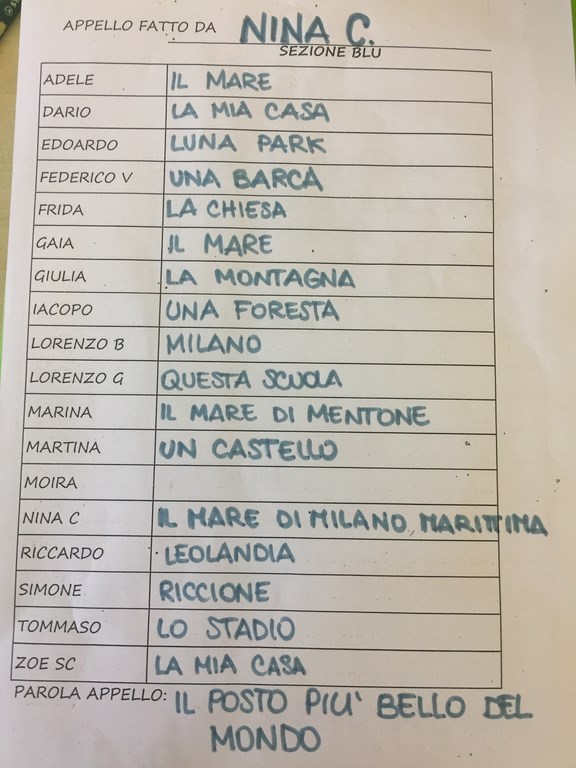 APPELLO FATTO DA NINA C.
SEZIONE BLU
ADELE IL MARE
DARIO LA MIA CASA
EDOARDO LUNA PARK
FEDERICO V UNA BARCA
FRIDA LA CHIESA
GAIA IL MARE
GIULIA LA MONTAGNA
IACOPO UNA FORESTA
LORENZO B MILANO
LORENZO G QUESTA SCUOLA
MARINA IL MARE DI MENTONE
MARTINA UN CASTELLO
MOIRA
NINA C IL MARE DI MILANO MARITTIMA
RICCARDO LEOLANDIA
SIMONE RICCIONE
TOMMASO LO STADIO
ZOE SC LA MIA CASA
PAROLA APPELLO: IL POSTO PIU' BELLO DEL
MONDO